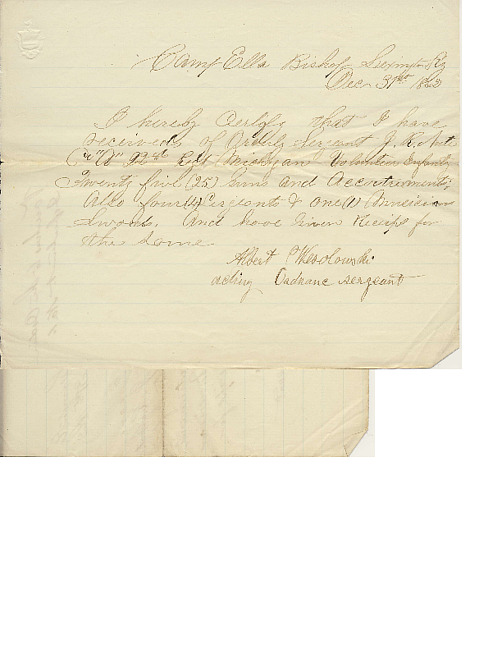 Camp Ella Bishop Lexing Ky
Dec 31st 1862
I hereby Certify that I have
received of Orderly Sergeant J. R.
Co 22d Regt Michigan Volunteer Infantry
Twenty five (25) Guns and Accoutrements
Also four (4) Sergeants & one (1) Musician
Swords. And have given Receipt for
the same.
Albert
acting Ordnanc sergeant